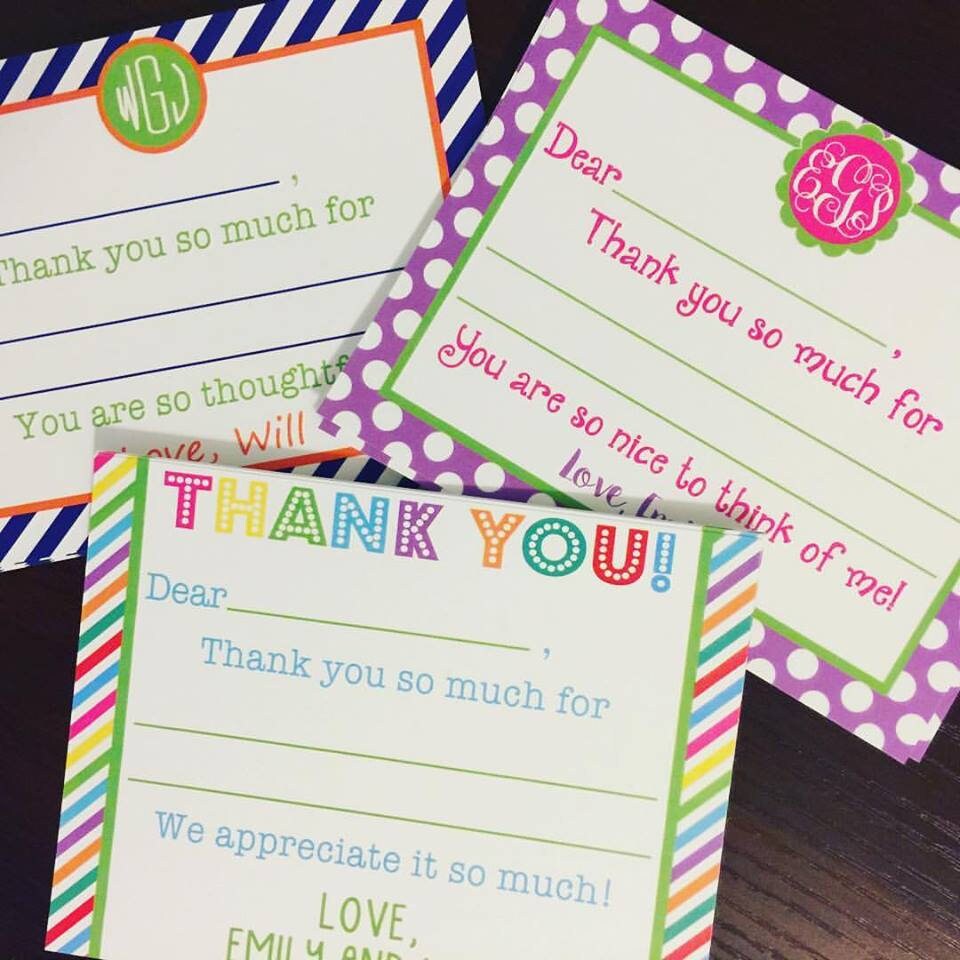 WGJ
,
Thank you so much for
You are so thoughtf
Love, Will
Dear ,
Thank you so much for
You are so nice to think of me!
Love,
THANK YOU!
Dear ,
Thank you so much for
We appreciate it so much!
LOVE,
EMILY AND